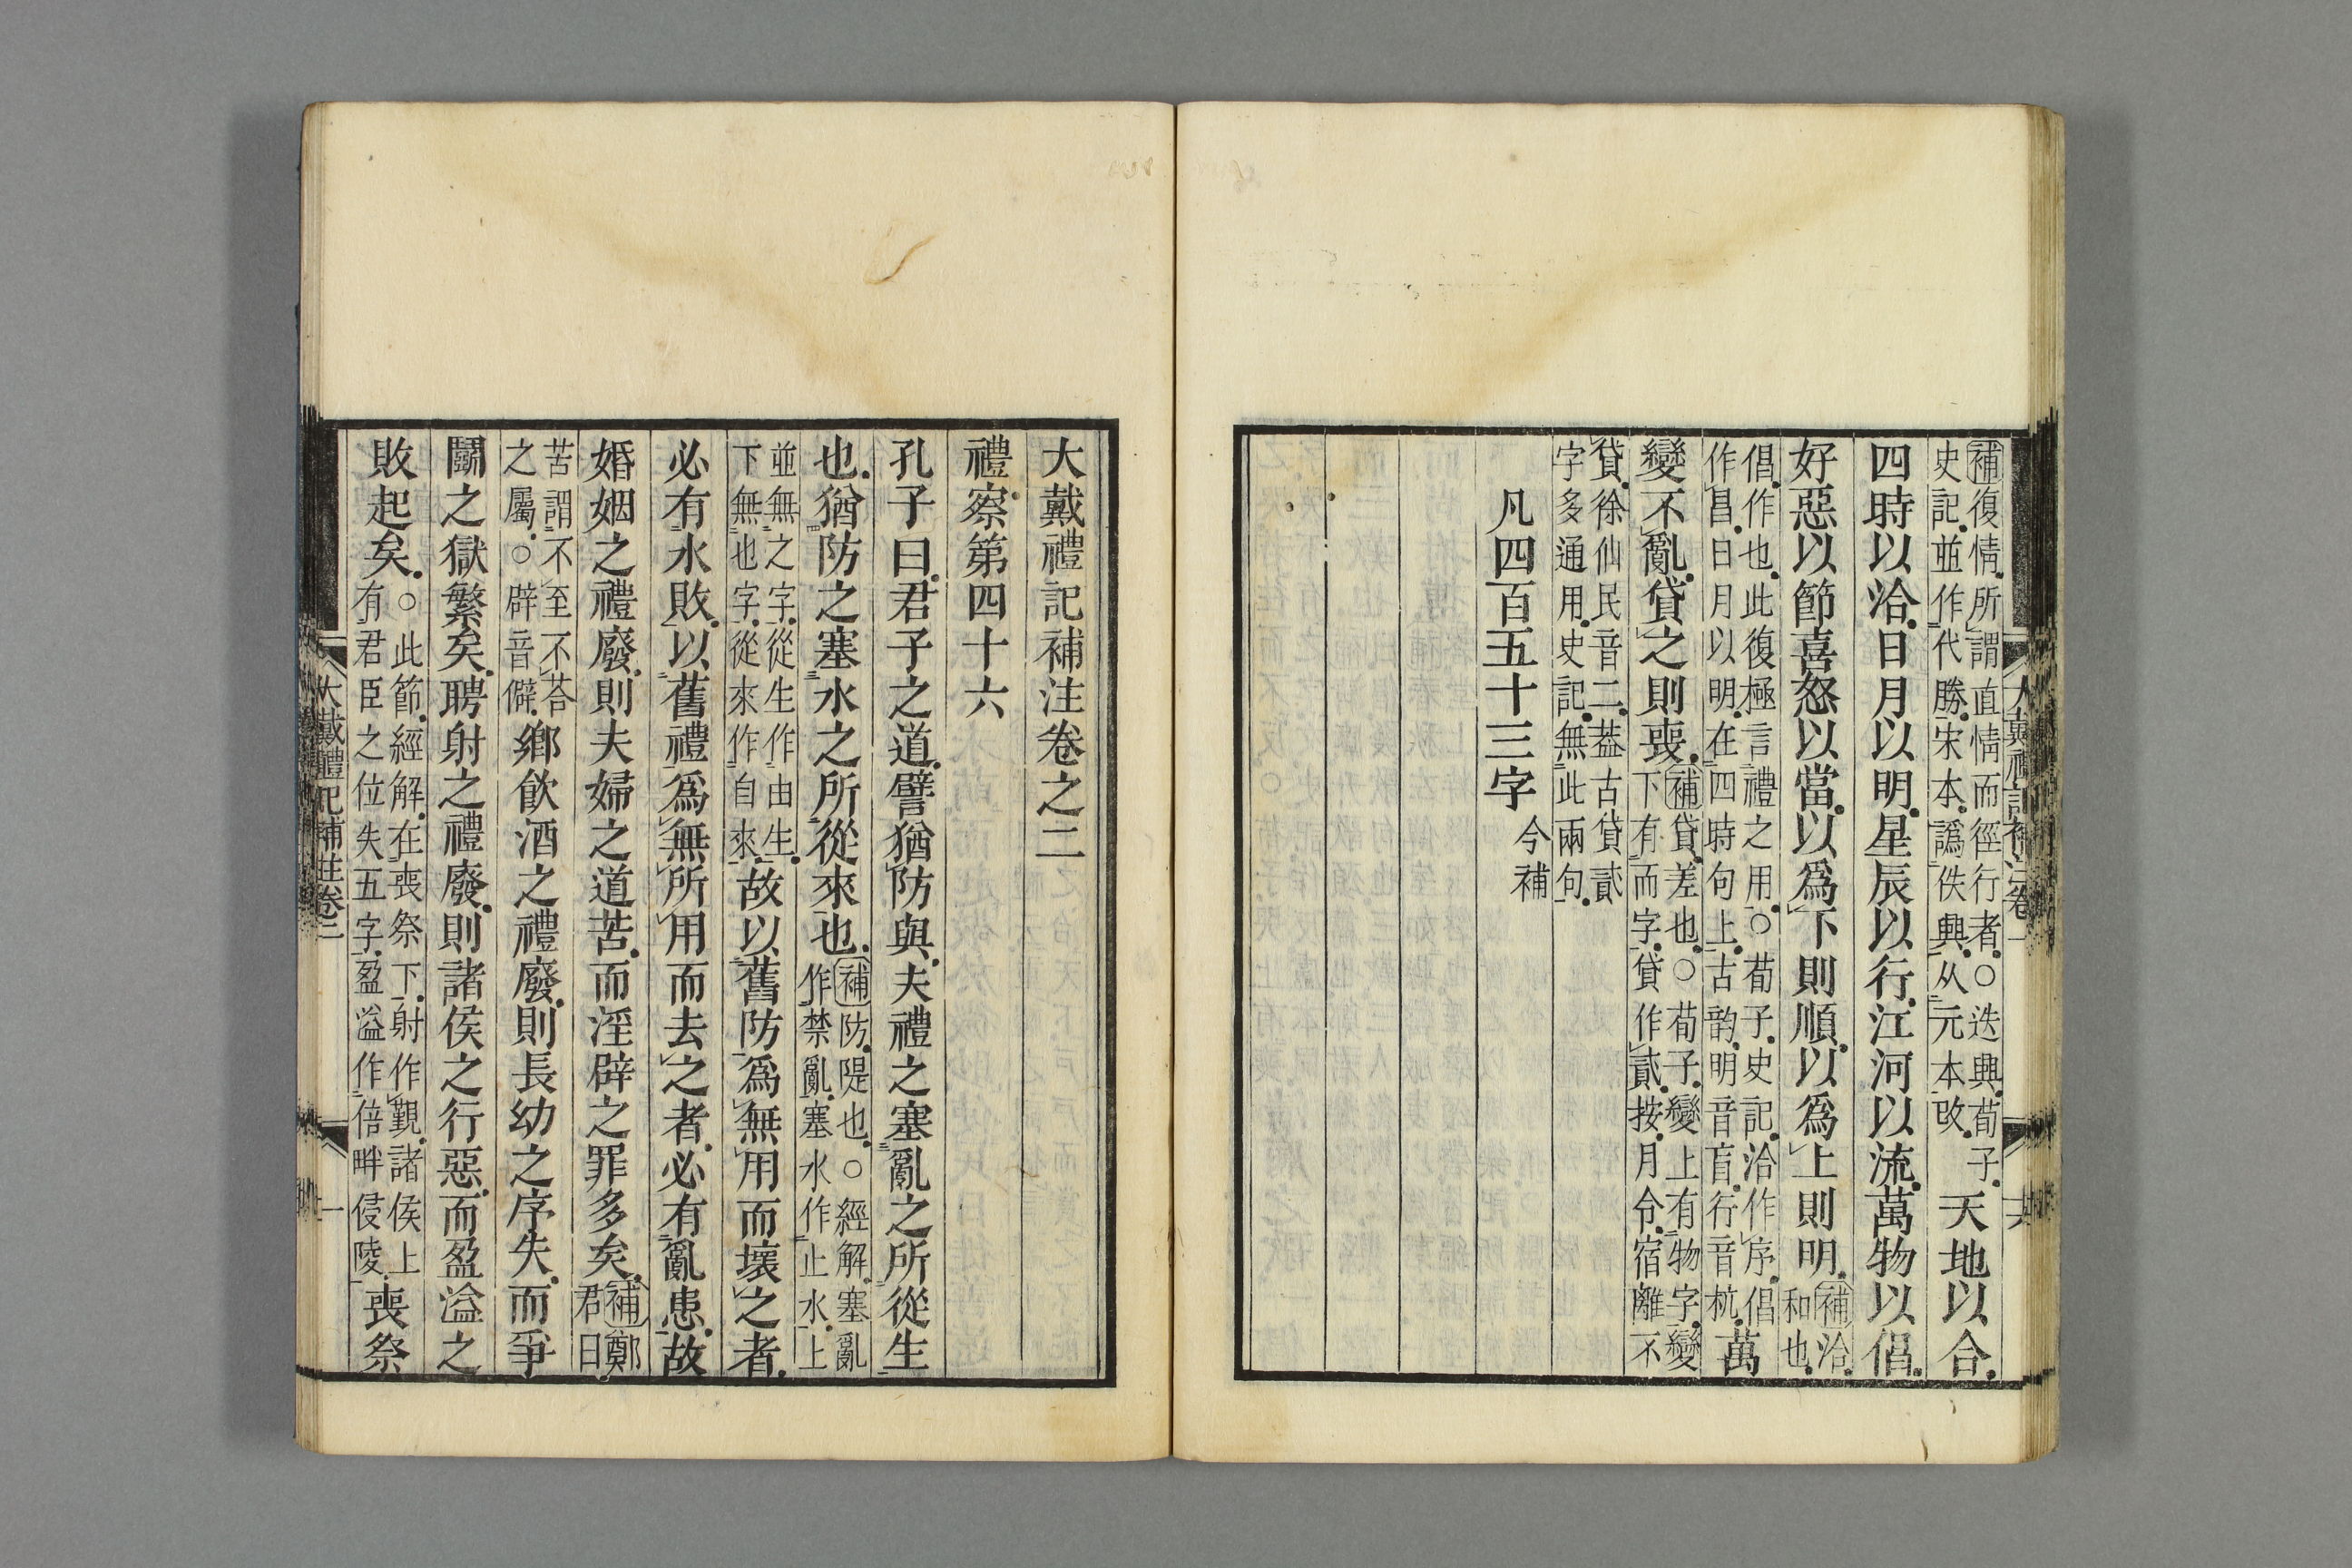 補復情所謂直情而徑行者○迭興荀子
史記並作代勝宋本譌佚興从元本改
天地以合
四時以洽日月以明星辰以行江河以流萬物以倡
好惡以節喜怒以當以爲下則順以爲上則明
補洽
和也
倡作也此復極言禮之用○荀子史記洽作序倡
作昌日月以明在四時句上古韵明音盲行音杭
萬
變不亂貸之則喪
補貸差也○荀子變上有物字變
下有而字貸作貳按月令宿離不
貸徐仙民音二葢古貸貳
字多通用史記無此兩句
凡四百五十三字
今補
大戴禮記補注卷一
共
大戴禮記補注卷之二
禮察第四十六
孔子曰君子之道譬猶防與夫禮之塞亂之所從生
也猶防之塞水之所從來也
補防隄也○經解塞亂
作禁亂塞水作止水上
並無之字從生作由生
下無也字從來作自來
故以舊防爲無用而壞之者
必有水敗以舊禮爲無所用而去之者必有亂患故
婚姻之禮廢則夫婦之道苦而淫辟之罪多矣
補鄭
君曰
苦謂不至不荅
之屬○辟音僻
鄉飲酒之禮廢則長幼之序失而爭
鬭之獄繁矣聘射之禮廢則諸侯之行惡而盈溢之
敗起矣
○此節經解在喪祭下射作覲諸侯上
有君臣之位失五字盈溢作倍畔侵陵
喪祭
大戴禮記補注卷二
一